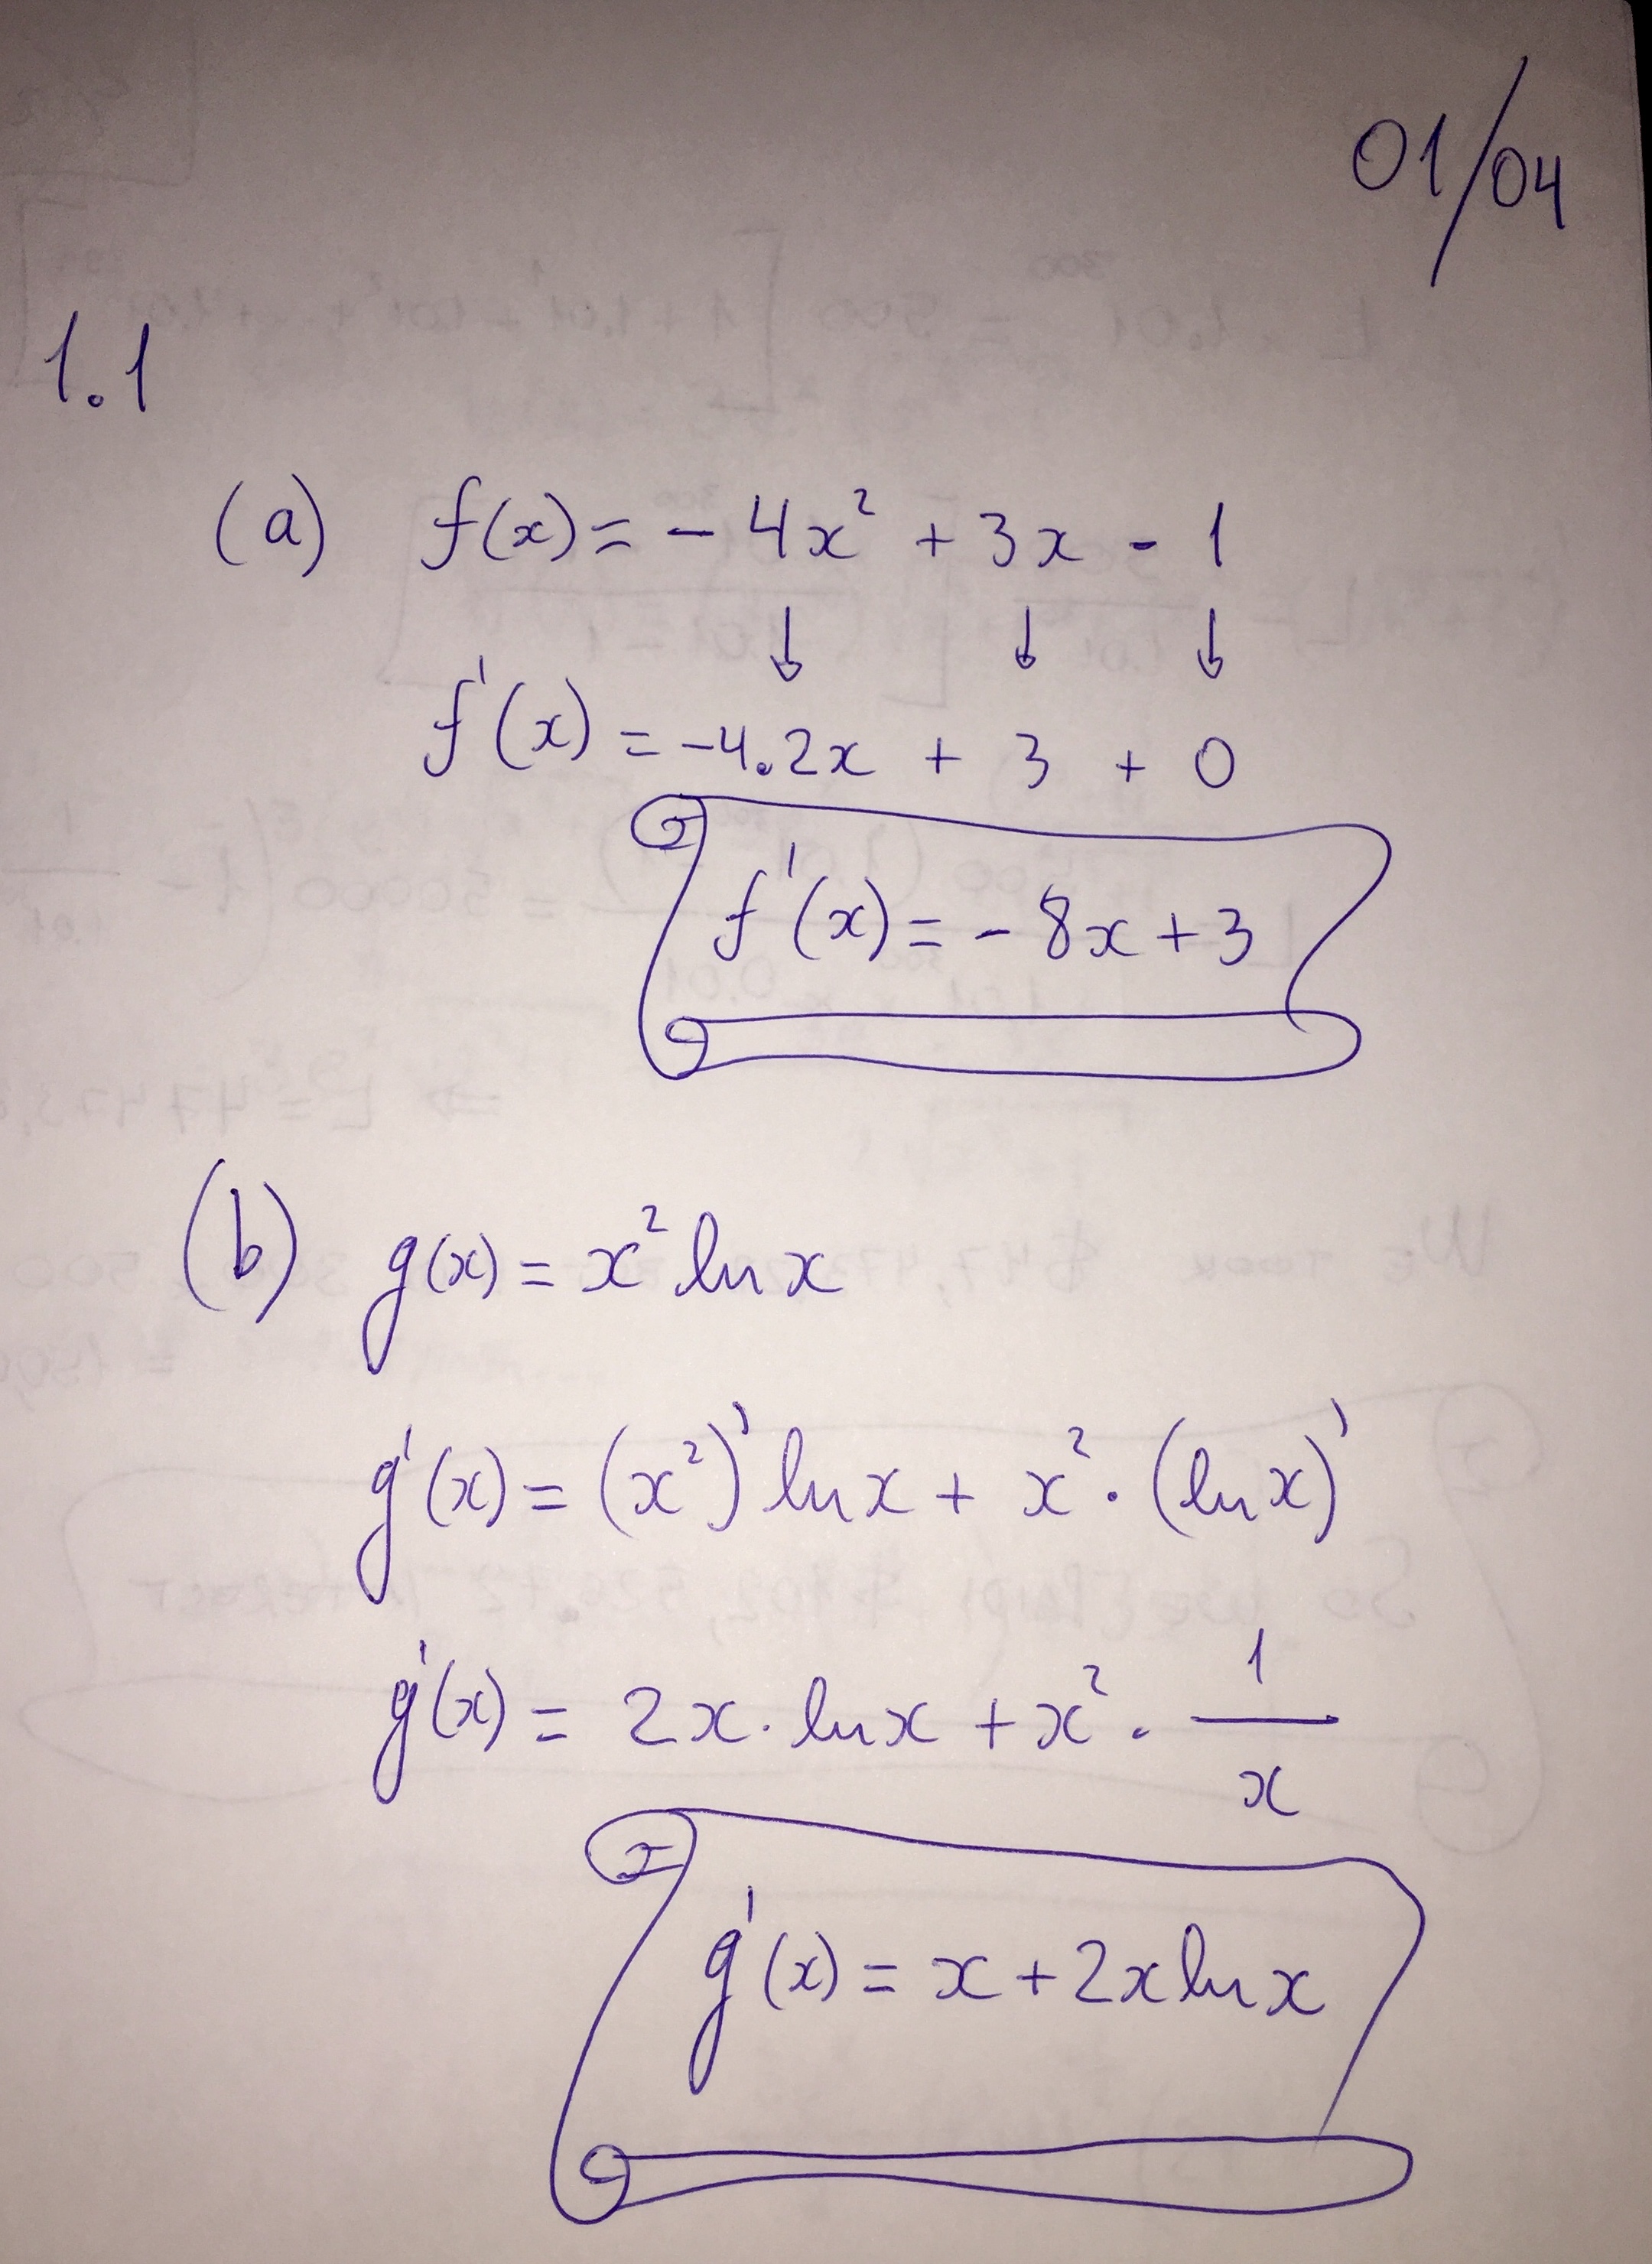 01/04
1.1
(a) f(x) = - 4x² + 3x - 1
↓ ↓ ↓
f'(x) = -4.2x + 3 + 0
f'(x) = - 8x + 3
(b) g(x) = x² ln x
g'(x) = (x²)' ln x + x² · (ln x)'
g'(x) = 2x · ln x + x² · 1/x
g'(x) = x + 2x ln x